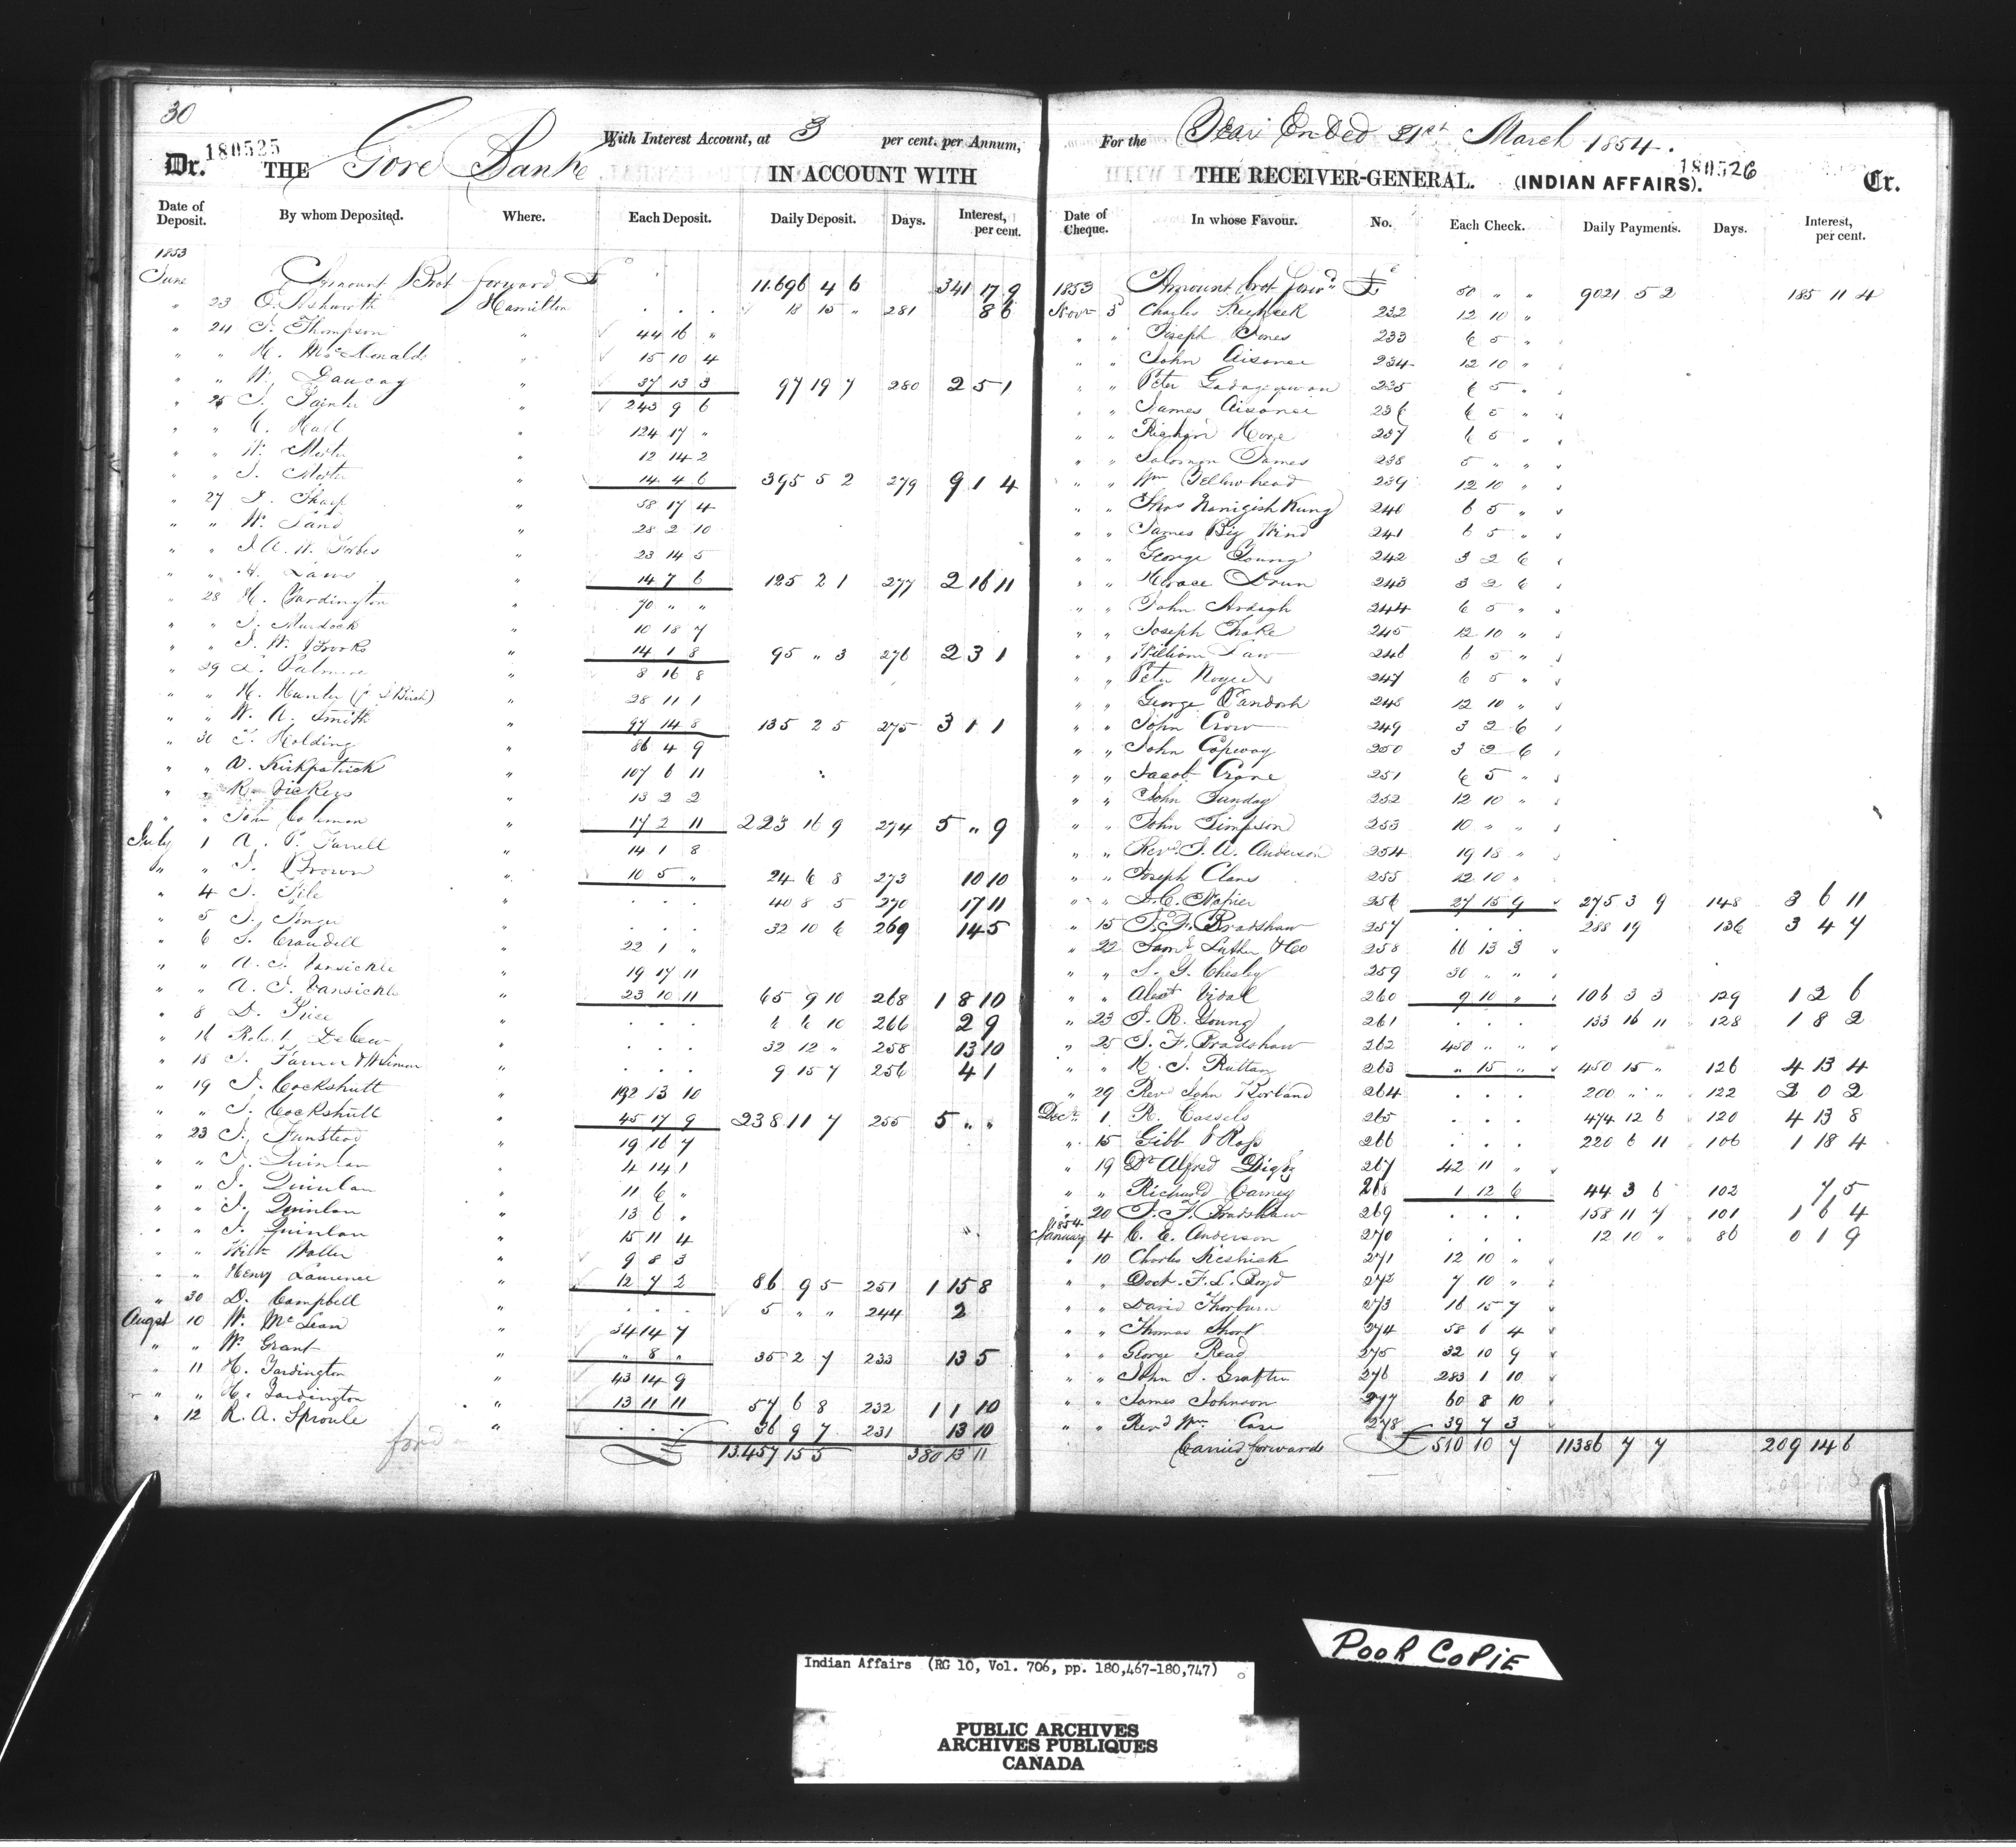 30
180525
With Interest Account, at 3 per cent. per Annum,
Dr. THE Gore Bank IN ACCOUNT WITH
Date of Deposit. By whom Deposited. Where. Each Deposit. Daily Deposit. Days. Interest, per cent.
1853
June Amount Brot forward £ 11.696 4 6 341 17 9
" 23 O. Ashworth Hamilton . . . 18 15 " 281 8 6
" 24 J. Thompson " 44 16 "
" " H. McDonald " 15 10 4
" " W. " 37 13 3 97 19 7 280 2 5 1
" 25 J. Painter " 243 9 6
" " C. Hall " 124 17 "
" " W. " 12 14 2
" " J. " 14 4 6 395 5 2 279 9 1 4
" 27 J. Sharp " 58 17 4
" " W. Land " 28 2 10
" " J. A. W. Forbes " 23 14 5
" " A. Laws " 14 7 6 125 2 1 277 2 16 11
" 28 H. Yardington " 70 " "
" " J. Murdock " 10 18 7
" " J. W. Brooks " 14 1 8 95 " 3 276 2 3 1
" 29 L. Palmer " 8 16 8
" " H. Hunter " 28 11 1
" " W. A. Smith " 97 14 8 135 2 5 275 3 1 1
" 30 T. Holding " 86 4 9
" " A. Kirkpatrick " 107 6 11
" " R. Vickers " 13 2 2
" " John Coleman " 17 2 11 223 16 9 274 5 " 9
July 1 A. P. Farrell " 14 1 8
" " J. Brown " 10 5 " 24 6 8 273 10 10
" 4 J. File " . . . 40 8 5 270 17 11
" 5 J. " . . . 32 10 6 269 14 5
" 6 S. Crandell " 22 1 "
" " A. J. Vansickle " 19 17 11
" " A. J. Vansickle " 23 10 11 65 9 10 268 1 8 10
" 8 D. Price " . . . 6 6 10 266 2 9
" 16 Robert DeCew " . . . 32 12 " 258 13 10
" 18 J. Farner " . . . 9 15 7 256 4 1
" 19 J. Cockshutt " 192 13 10
" " J. Cockshutt " 45 17 9 238 11 7 255 5 " "
" 23 J. Funstead " 19 16 7
" " J. Quinlan " 4 14 1
" " J. Quinlan " 11 6 "
" " J. Quinlan " 13 6 "
" " J. Quinlan " 15 11 4
" " Waller " 9 8 3
" " Henry Laurence " 12 7 2 86 9 5 251 1 15 8
" 30 D. Campbell " . . . 5 " " 244 2
Augst 10 W. McLean " 34 14 7
" " W. Grant " " 8 " 35 2 7 233 13 5
" 11 H. Yardington " 43 14 9
" " H. Yardington " 13 11 11 57 6 8 232 1 1 10
" 12 R. A. Sproule " . . . 36 9 7 231 13 10
ford £ 13.457 15 5 380 13 11
For the Year Ended 31st March 1854.
THE RECEIVER-GENERAL. (INDIAN AFFAIRS). 180526 Cr.
Date of Cheque. In whose Favour. No. Each Check. Daily Payments. Days. Interest, per cent.
1853 Amount brot forwd £ 50 " " 9021 5 2 185 11 4
Novr 3 Charles Keeshick 232 12 10 "
" " Joseph Jones 233 6 5 "
" " John Aisance 234 12 10 "
" " Peter 235 6 5 "
" " James Aisance 236 6 5 "
" " 237 6 5 "
" " Solomon James 238 5 " "
" " Wm Yellowhead 239 12 10 "
" " Thos Nanigishkung 240 6 5 "
" " James Big Wind 241 6 5 "
" " George Young 242 3 2 6
" " Horace 243 3 2 6
" " John Ardagh 244 6 5 "
" " Joseph Snake 245 12 10 "
" " William Law 246 6 5 "
" " Peter 247 6 5 "
" " George 248 12 10 "
" " John Crow 249 3 2 6
" " John Copway 250 3 2 6
" " Jacob Crane 251 6 5 "
" " John Sunday 252 12 10 "
" " John Simpson 253 10 " "
" " Revd J. A. Anderson 254 19 18 "
" " Joseph Clans 255 12 10 "
" " D. C. Napier 256 27 15 9 275 3 9 148 3 6 11
" 15 J. F. Bradshaw 257 . . . 288 19 136 3 4 7
" 22 Saml Luther & Co 258 66 13 3
" " S. Y. Chesley 259 30 " "
" " Alexr Vidal 260 9 10 " 106 3 3 129 1 2 6
" 23 J. R. Young 261 . . . 133 16 11 128 1 8 2
" 25 J. F. Bradshaw 262 450 " "
" " H. J. Ruttan 263 " 15 " 450 15 " 126 4 13 4
" 29 Revd John Borland 264 . . . 200 " " 122 2 0 2
Decr 1 R. Cassels 265 . . . 474 12 6 120 4 13 8
" 15 Gibb & Ross 266 . . . 220 6 11 106 1 18 4
" 19 Dr Alfred Digby 267 42 11 "
" " Richard Carney 268 1 12 6 44 3 6 102 7 5
" 20 J. F. Bradshaw 269 . . . 158 11 7 101 1 6 4
1854
January 4 C. E. Anderson 270 . . . 12 10 " 86 0 1 9
" 10 Charles Keshick 271 12 10 "
" " Doct. F. L. Boyd 272 7 10 "
" " David Thorburn 273 16 15 7
" " Thomas Short 274 58 6 4
" " George Read 275 32 10 9
" " John S. Grafton 276 283 1 10
" " James Johnson 277 60 8 10
" " Revd Wm Case 278 39 7 3
Carried forwards £ 510 10 7 11386 7 7 209 14 6
POOR COPIE
Indian Affairs (RG 10, Vol. 706, pp. 180,467-180,747)
PUBLIC ARCHIVES
ARCHIVES PUBLIQUES
CANADA